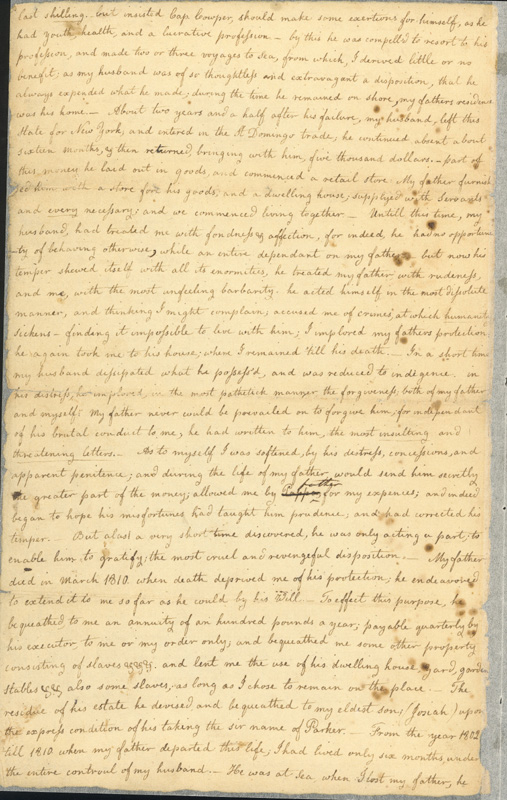 last shilling.- but insisted Cap: Cowper, should make some exertions for himself, as he
had youth, health, and a lucrative profession - by this he was compell'd to resort to his
profession, and made two or three voyages to Sea, from which, I derived little or no
benefit, as my husband was of so thoughtless and extravagant a disposition, that he
always expended what he made; during the time he remained on shore, my fathers residence
was his home.- About two years and a half after his failure, my husband, left this
State for New York, and entered in the St Domingo trade, he continued absent about
sixteen months, & then returned, bringing with him, five thousand dollars.- part of
this, money he laid out in goods, and commenced a retail store. My father furnish
ed him with a store for his goods, and a dwelling house, supplyed with Servants
and every necessary; and we commenced living together.- Untill this time, my
husband, had treated me with fondness & affection, for indeed, he had no opportuni
ty of behaving otherwise, while an entire dependant on my father - but now his
temper shewed itself with all its enormities, he treated my father with rudeness,
and me, with the most unfeeling barbarity. he acted himself in the most dissolute
manner, and thinking I might complain; accused me of crimes, at which humanity
sickens - finding it impossible to live with him; I implored my fathers protection,
he again took me to his house; where I remained 'till his death.- In a short time
my husband dissipated what he possess'd, and was reduced to indegence. in
his distress, he implored, in the most pathetick manner, the forgiveness, both of my father
and myself: My father never would be prevailed on to forgive him; for independant
of his brutal conduct to me; he had written to him, the most insulting and
threatening letters.- As to myself I was softened, by his distress, concessions, and
apparent penitence; and during the life of my father, would send him secretly
the greater part of the money; allowed me by father for my expences; and indeed
began to hope his misfortunes had taught him prudence, and had corrected his
temper.- But alas! a very short time discovered, he was only acting a part, to
enable him to gratify, the most cruel and revengeful disposition.- My father
died in March 1810. when death deprived me of his protection; he endeavored
to extend it to me so far as he could by his Will.- To effect this purpose, he
bequeathed to me an annuity of an hundred pounds a year; payable quarterly by
his executor, to me or my order only; and bequeathed me some other property
consisting of slaves &c&c. and lent me the use of his dwelling house, yard, garden
stables &c, also some slaves, as long as I chose to remain on the place.- The
residue of his estate he devised and bequeathed to my eldest son (Josiah) upon
the express condition of his taking the sir name of Parker.- From the year 1802
till 1810 when my father departed this life; I had lived only six months, under
the entire controul of my husband.- He was at Sea when I lost my father, he